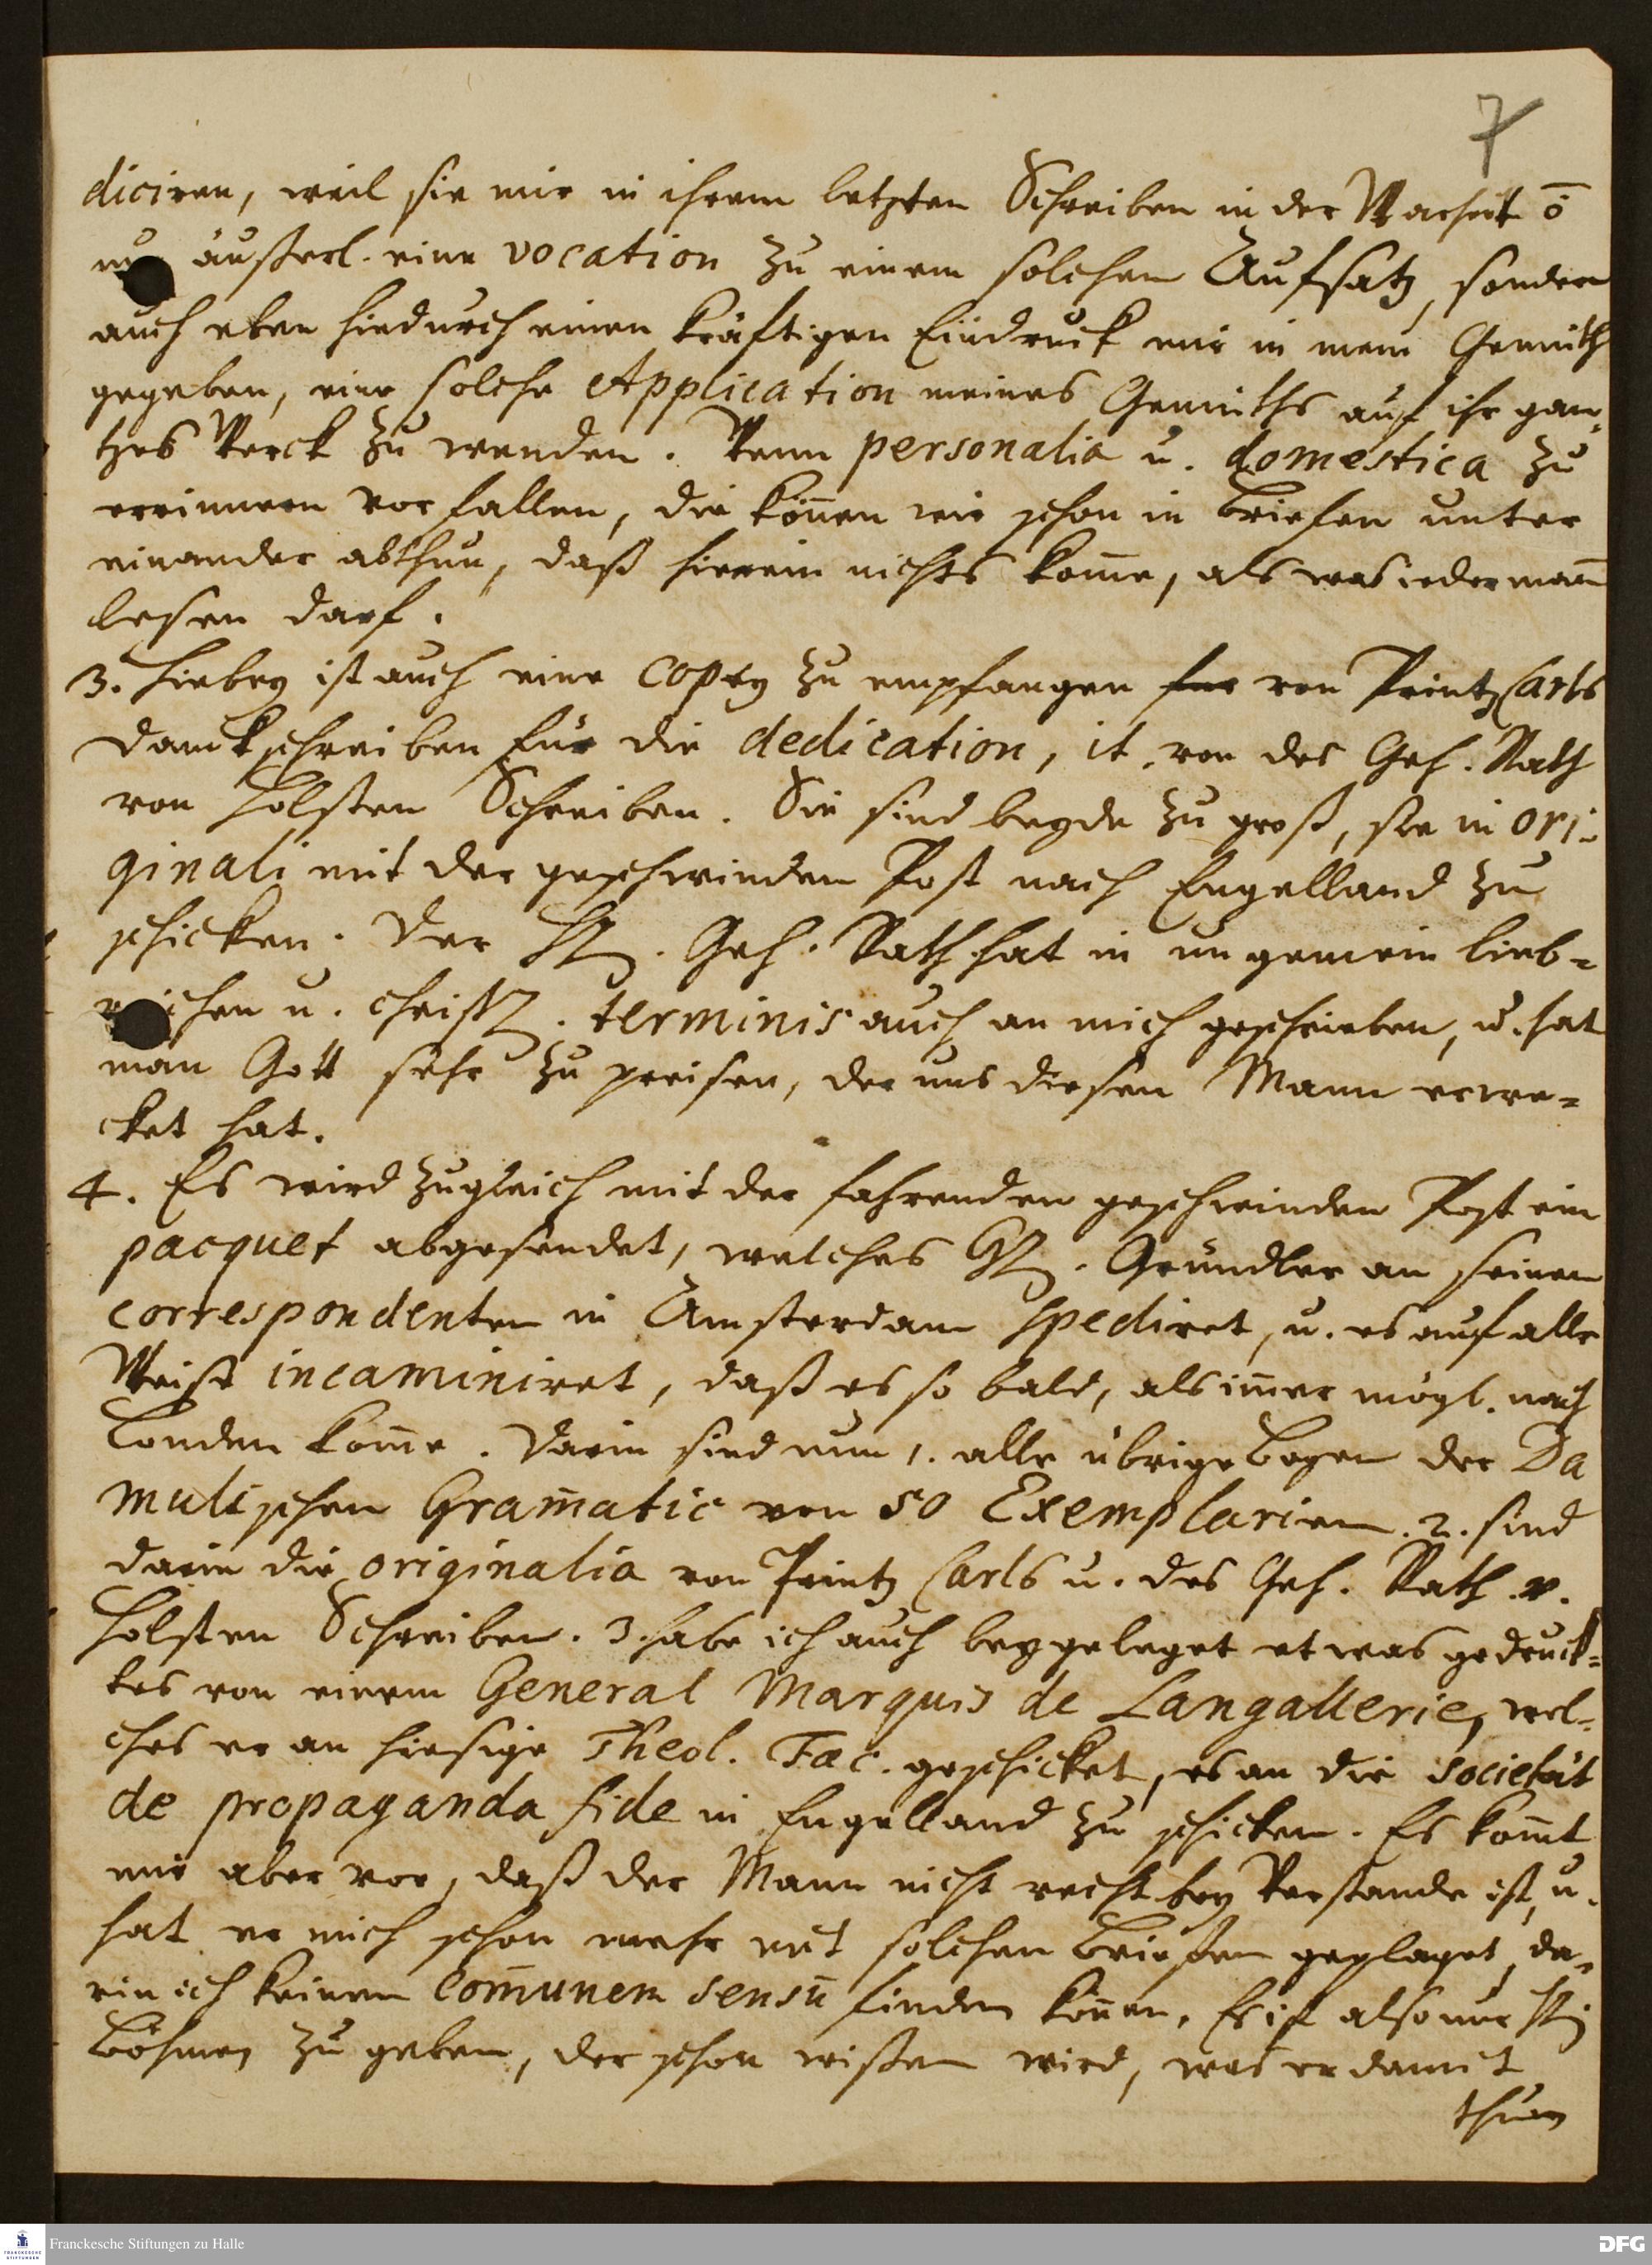 7
diciren, weil sie mir in ihrem letzten Schreiben in der Warheit ō
nur äußerl. eine vocation zu einem solchen Aufsatz, sondern
auch eben hiedurch einen kräftigen Eindruck mir in mein Gemüth
gegeben, eine solche Application meines Gemüths auf ihr gan-
tzes Werck zu wenden. Wenn personalia u. domestica zu
erinnern vorfallen, die köñen wir schon in briefen unter
einander abthun, daß hierein nichts kom̄e, als was iederman̄
lesen darf.
3. Hiebey ist auch eine Copey zu empfangen für von Printz Carls
Danckschreiben für die dedication, it. von des Geh. Rath
von Holsten Schreiben. Sie sind beyde zu groß, sie in ori-
ginali mit der geschwinden Post nach Engelland zu
schicken. Der H. Geh. Rath hat in ungemein lieb-
reichen u. christl. terminis auch an mich geschrieben, u. hat
man Gott sehr zu preisen, der uns diesen Mann erwe-
cket hat.
4. Es wird zugleich mit der fahrenden geschwinden Post ein
pacquet abgesendet, welches H. Gründler an seinen
correspondenten in Amsterdam spediret, u. es auf alle
Weise incaminiret, daß es so bald, als im̄er mögl. nach
Londen kom̄e. Darin sind nun 1. alle übrige bogen der Da
mulischen Gram̄atic von 50 Exemplarien. 2. sind
darin die originalia von Printz Carls u. des Geh. Rath v.
Holsten Schreiben. 3. habe ich auch beygeleget etwas gedruck-
tes von einem General Marquis de Langallerie, wel-
ches er an hiesige Theol. Fac. geschicket, es an die societät
de propaganda fide in Engelland zu schicken. Es kom̄t
mir aber vor, daß der Mann nicht recht bey Verstande ist, u.
hat er mich schon mehr mit solchen briefen geplaget, da-
rin ich keinen com̄unem sensū finden köñen. Es ist also nur H.
Böhmen zu geben, der schon wißen wird, was er damit
thun
Franckesche Stiftungen zu Halle
DFG